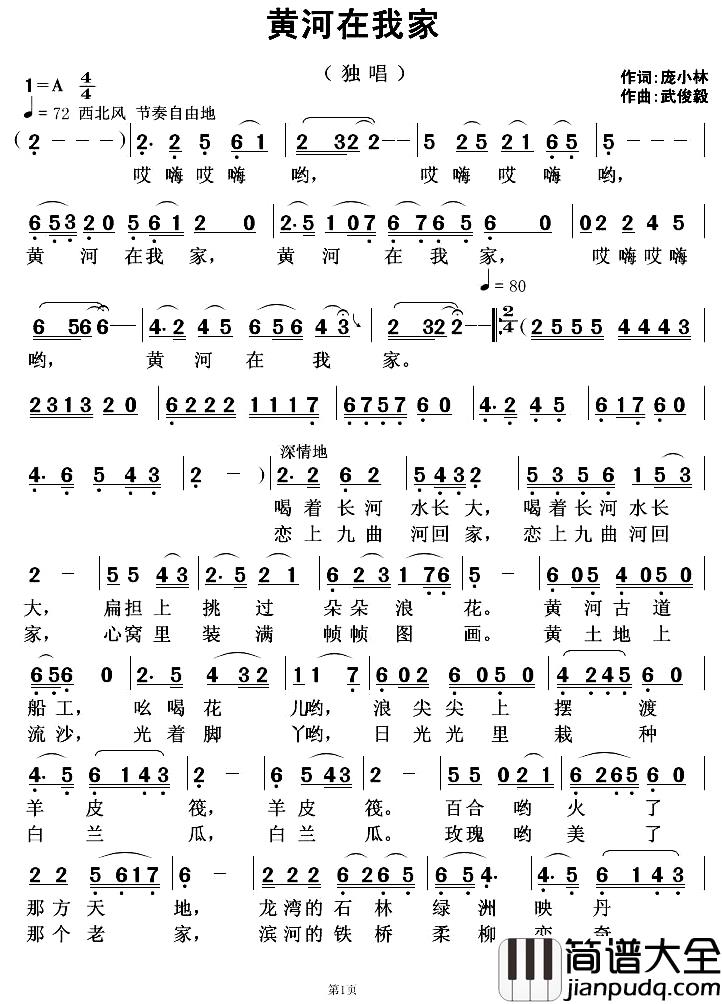 黄河在我家
（独唱）
1=A 4/4
作词:庞小林
作曲:武俊毅
♩=72 西北风 节奏自由地
(2 - - -) 2· 2 5 6 1 2 3 2 2 - - 5 2 5 2 1 6 5 5 - - -
哎 嗨 哎 嗨 哟, 哎 嗨 哎 嗨 哟,
6 5 3 2 0 5 6 1 2 0 2· 5 1 0 7 6 7 6 5 6 0 0 2 2 4 5
黄 河 在我 家, 黄 河 在 我 家, 哎嗨哎嗨
♩=80
6 5 6 6 - - 4· 2 4 5 6 5 6 4 3 2 3 2 2 - - 2/4 (2 5 5 5 4 4 4 3
哟, 黄 河 在 我 家。
2 3 1 3 2 0 6 2 2 2 1 1 1 7 6 7 5 7 6 0 4· 2 4 5 6 1 7 6 0
深情地
4· 6 5 4 3 2 - ) 2· 2 6 2 5 4 3 2 5 3 5 6 1 5 3
喝着长河 水长大, 喝着长河水长
恋上九曲 河回家, 恋上九曲河回
2 - 5 5 4 3 2· 5 2 1 6 2 3 1 7 6 5 - 6 0 5 4 0 5 0
大, 扁担上 挑 过 朵朵浪 花。 黄 河古道
家, 心窝里 装 满 帧帧图 画。 黄 土地上
6 5 6 0 2· 5 4 3 2 1 1 7 6 0 2 6 0 5 0 4 2 4 5 6
船工, 吆喝花 儿哟, 浪尖尖上 摆 渡
流沙, 光着脚 丫哟, 日光光里 栽 种
4· 5 6 1 4 3 2 - 6 5 5 4 3 2 - 5 5 0 2 1 2 6 2 6 5 6
羊 皮 筏, 羊 皮 筏。 百合哟火 了
白 兰 瓜, 白 兰 瓜。 玫瑰哟美 了
2 2 5 6 1 7 6 - 2 2 5 6 2 6 5 6 5 4 4· 5 6 5
那方天 地, 龙湾的石林绿洲映丹
那个老 家, 滨河的铁桥柔柳恋奇
第1页
简谱大全
jianpudq.com